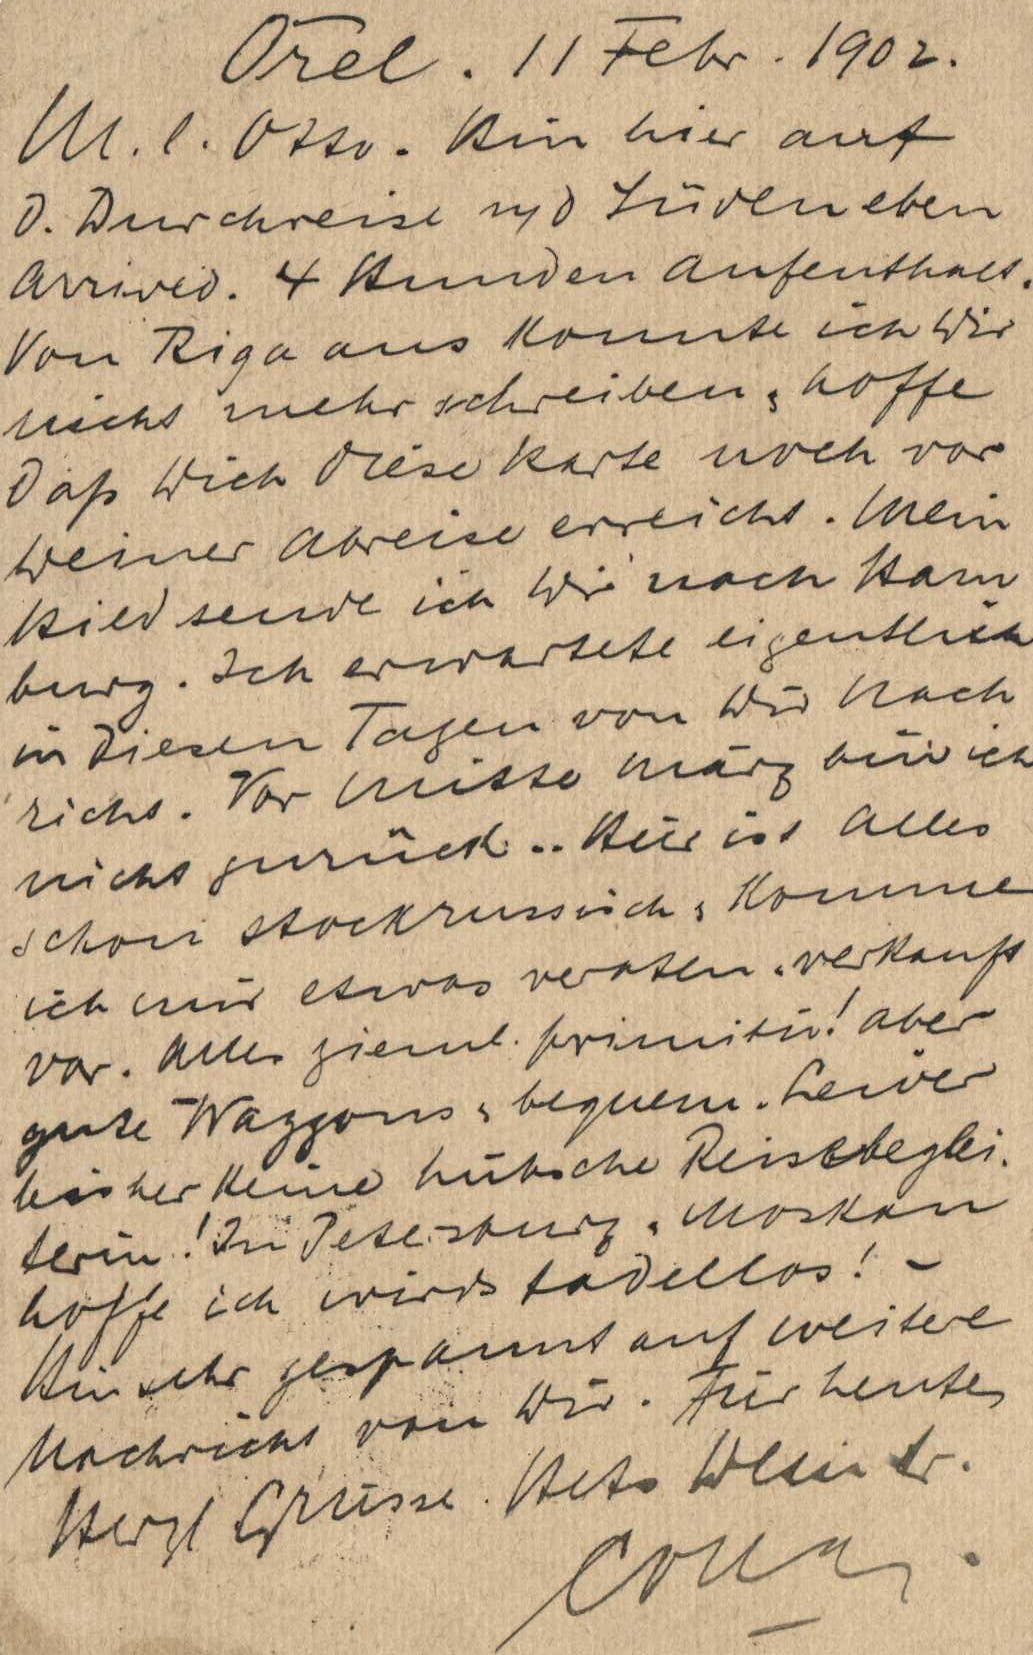 Orel. 11 Febr. 1902.
M. l. Otto. Bin hier auf
d. Durchreise n/d Süden eben
arrived. 4 Stunden Aufenthalt.
Von Riga aus konnte ich Dir
nicht mehr schreiben, hoffe
daß Dich diese Karte noch vor
Deiner Abreise erreicht. Mein
Bild sende ich Dir nach Ham
burg. Ich erwartete eigentlich
in diesen Tagen von Dir Nach
richt. Vor Mitte März bin ich
nicht zurück.. Hier ist Alles
schon stockrussisch, komme
ich mir etwas veraten u. verkauft
vor. Alles zieml. primitiv! aber
gute Waggons, bequem. Leider
bisher keine hübsche Reisebeglei.
terin! In Petersburg u. Moskau
hoffe ich wirds tadellos! –
Bin sehr gespannt auf weitere
Nachricht von Dir. Für heute
Herzl Grüsse. Stets Dein tr.